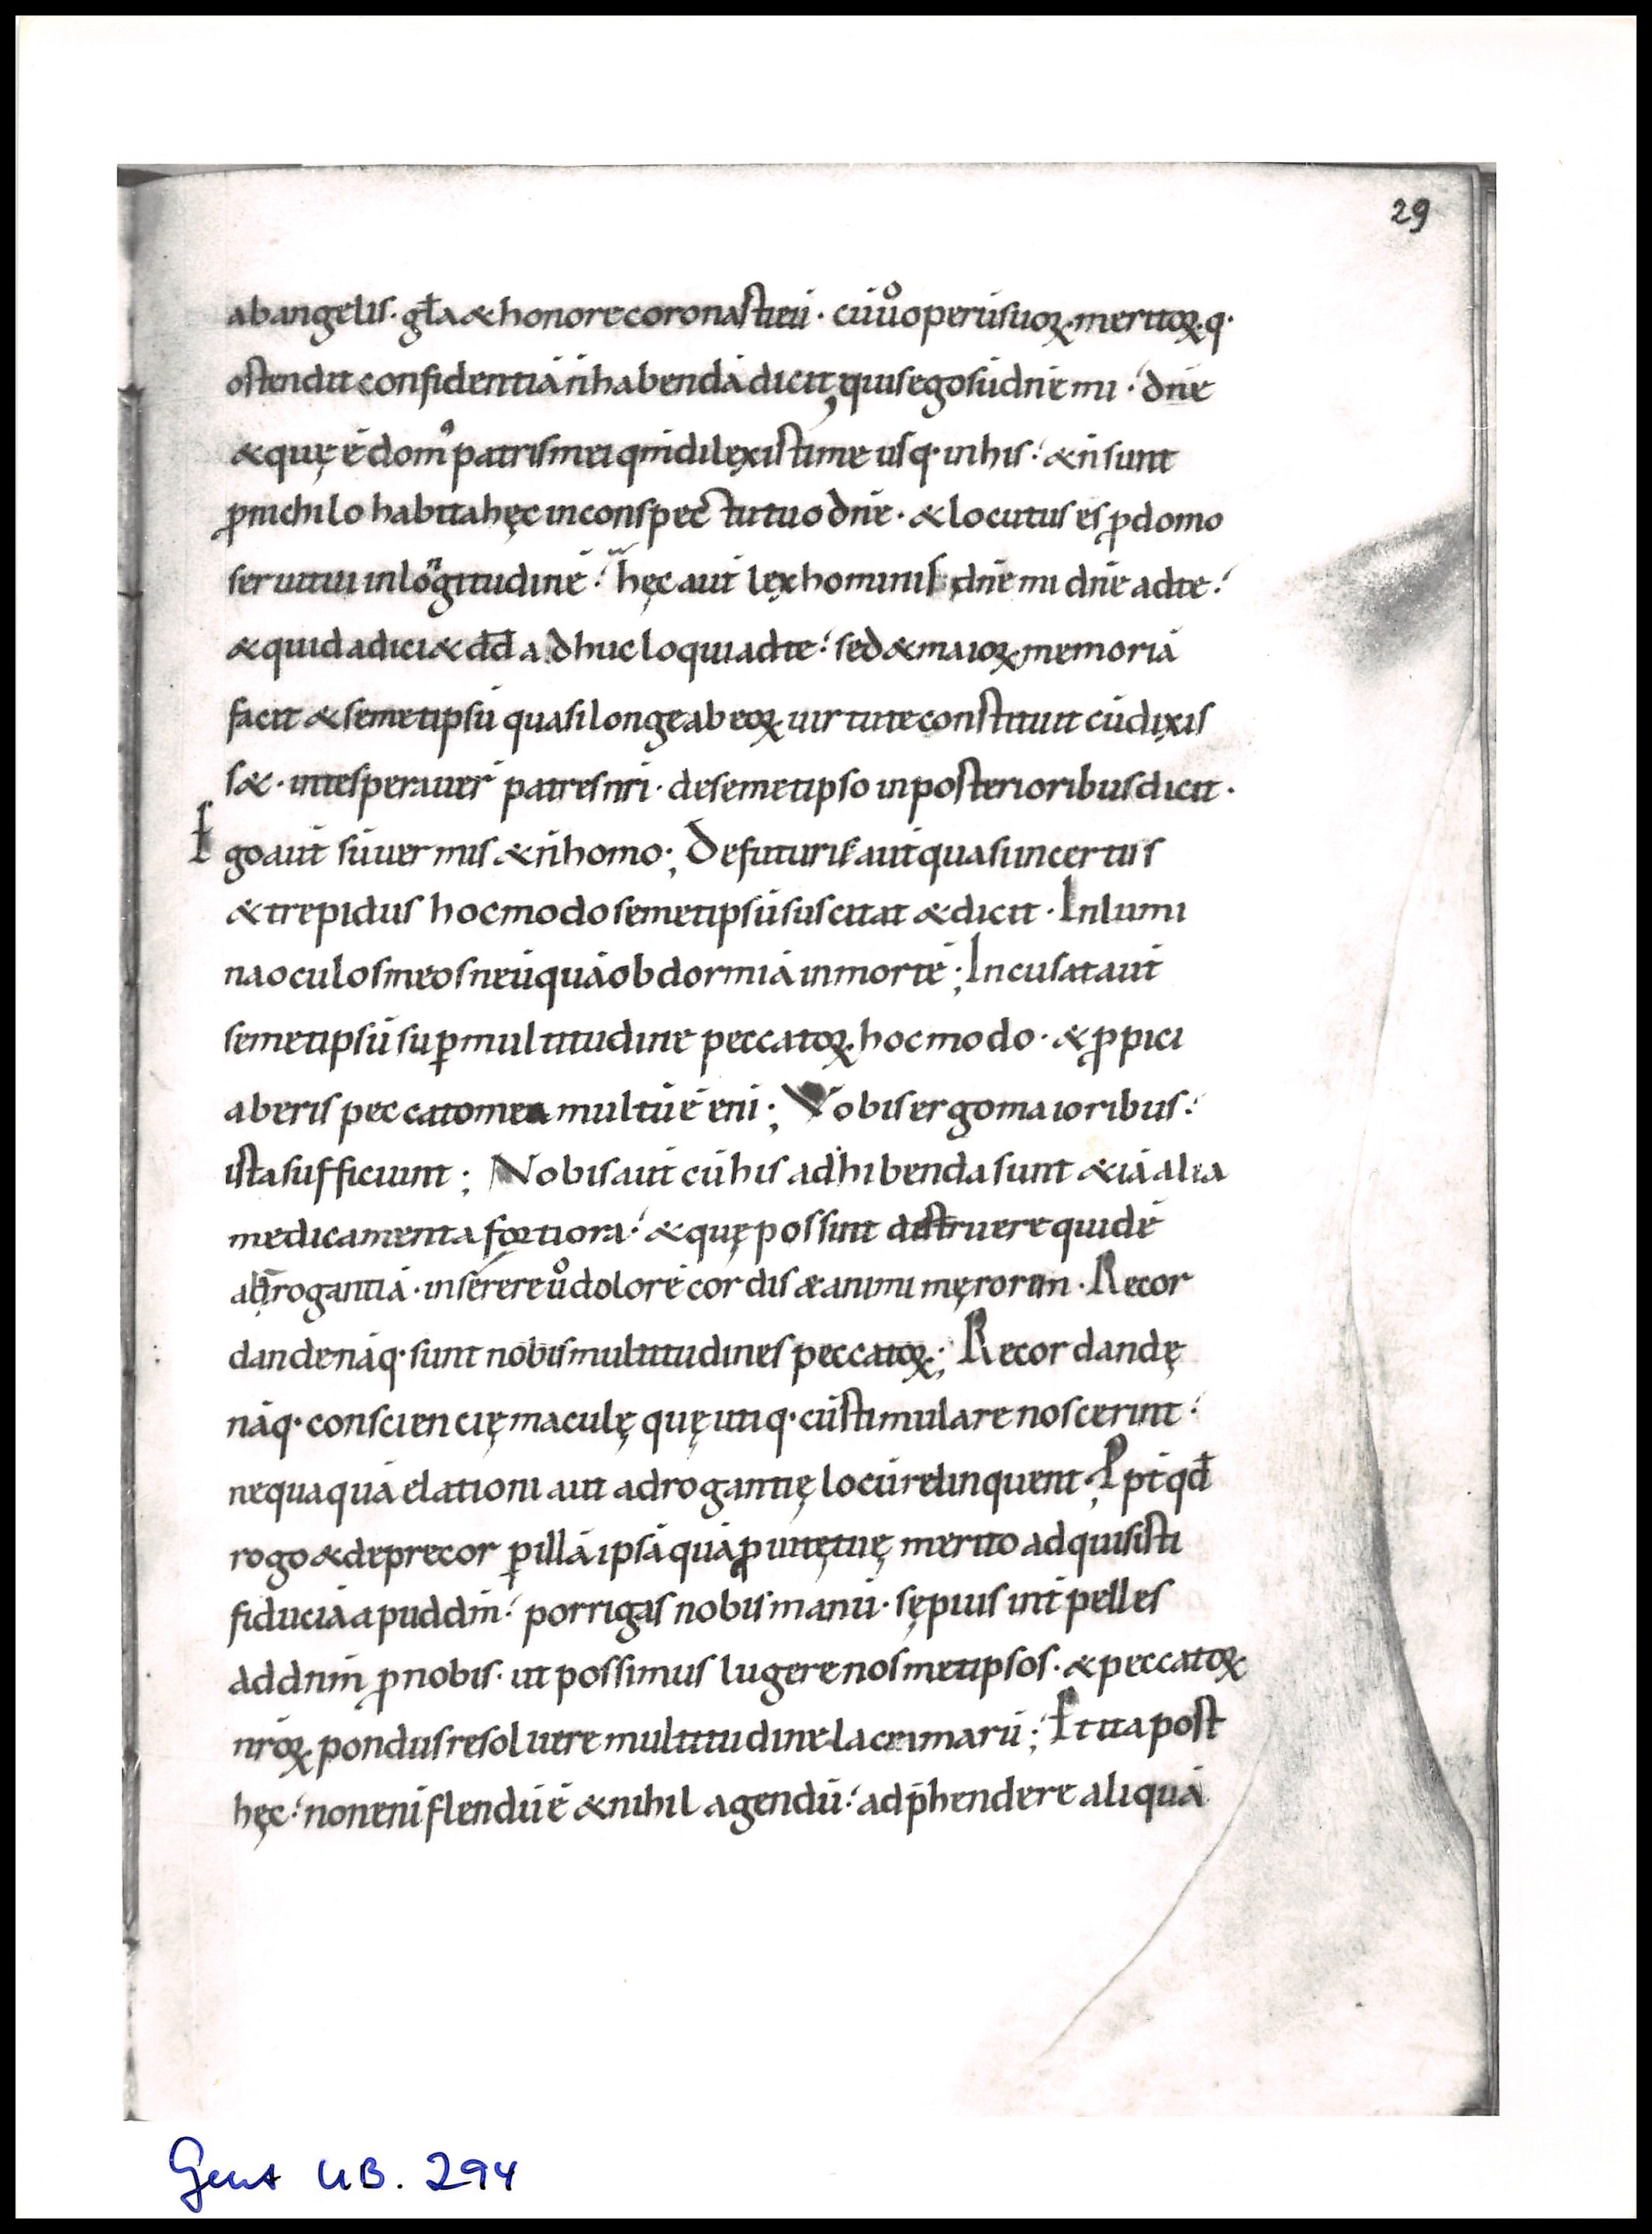 29
ab angelis · gła & honore coronasti eū · cū ůo operū suoꝝ · meritoꝝ · q·
ostendit confidentiā n̄ habendā dicit, quis ego sū dn̄e mi · dn̄e
& quę ē domꝰ patris mei qm̄ dilexisti me usq· in his : & n̄ sunt
ꝓ nichilo habita hęc in conspectu tuo dn̄e · & locutus es ꝓ domo
serui tui in lon̄gitudinē : hęc aut̄ lex hominis dn̄e mi dn̄e ad te :
& quid adici& dd̄ adhuc loqui ad te : sed & maioꝝ memoriā
facit & semetipsū quasi longe ab eoꝝ uirtute constituit cū dixis
s& · in te speraueř patres nr̄i · de semetipso in posterioribus dicit ·
Ego aut̄ sū uermis & n̄ homo ; De futuris aut̄ quasi incertus
& trepidus hoc modo semetipsū suscitat & dicit · Inlumi
na oculos meos ne ūquā obdormiā in mortē ; Incusat aut̄
semetipsū suꝑ multitudine peccatoꝝ hoc modo · & ꝓpici
aberis peccato meo multū ē enī ; Vobis ergo maioribus :
ista sufficiunt ; Nobis aut̄ cū his adhibenda sunt & iā alia
medicamenta fortiora : & quę possint destruere quidē
adrogantiā · inserere ů dolorē cordis & animi męrorem · Recor
dande nāq· sunt nobis multitudines peccatoꝝ ; Recordandę
nāq· conscięncię maculę quę utiq· cū stimulare nos cerint :
nequaquā elationi aut adrogantię locū relinquent ; Ppt̄ qđ
rogo & deprecor ꝑ illā ipsā quā ꝓ uitę tuę merito adquisisti
fiduciā apud dm̄ : porrigas nobis manū · sępius int̄pelles
ad dnm̄ ꝓ nobis · ut possimus lugere nosmetipsos · & peccatoꝝ
nr̄oꝝ pondus resoluere multitudine lacrimarū ; Et ita post
hęc : non enī flendū ē & nihil agendū : adp̄hendere aliquā
Gent UB. 294